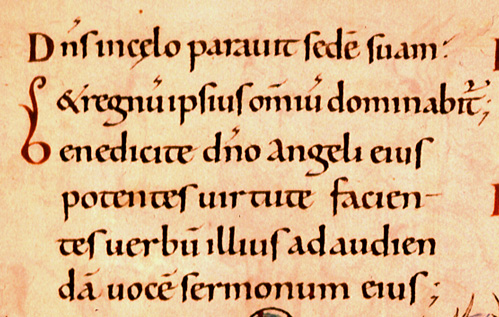 Dn̄s incęlo parauit sedē suam·
&regnū ipsius omīū dominabit̄;
Benedicite dn̄o angeli eius
potentes uirtute facien-
tes uerbū illius ad audien
dā uocē sermonum eius;